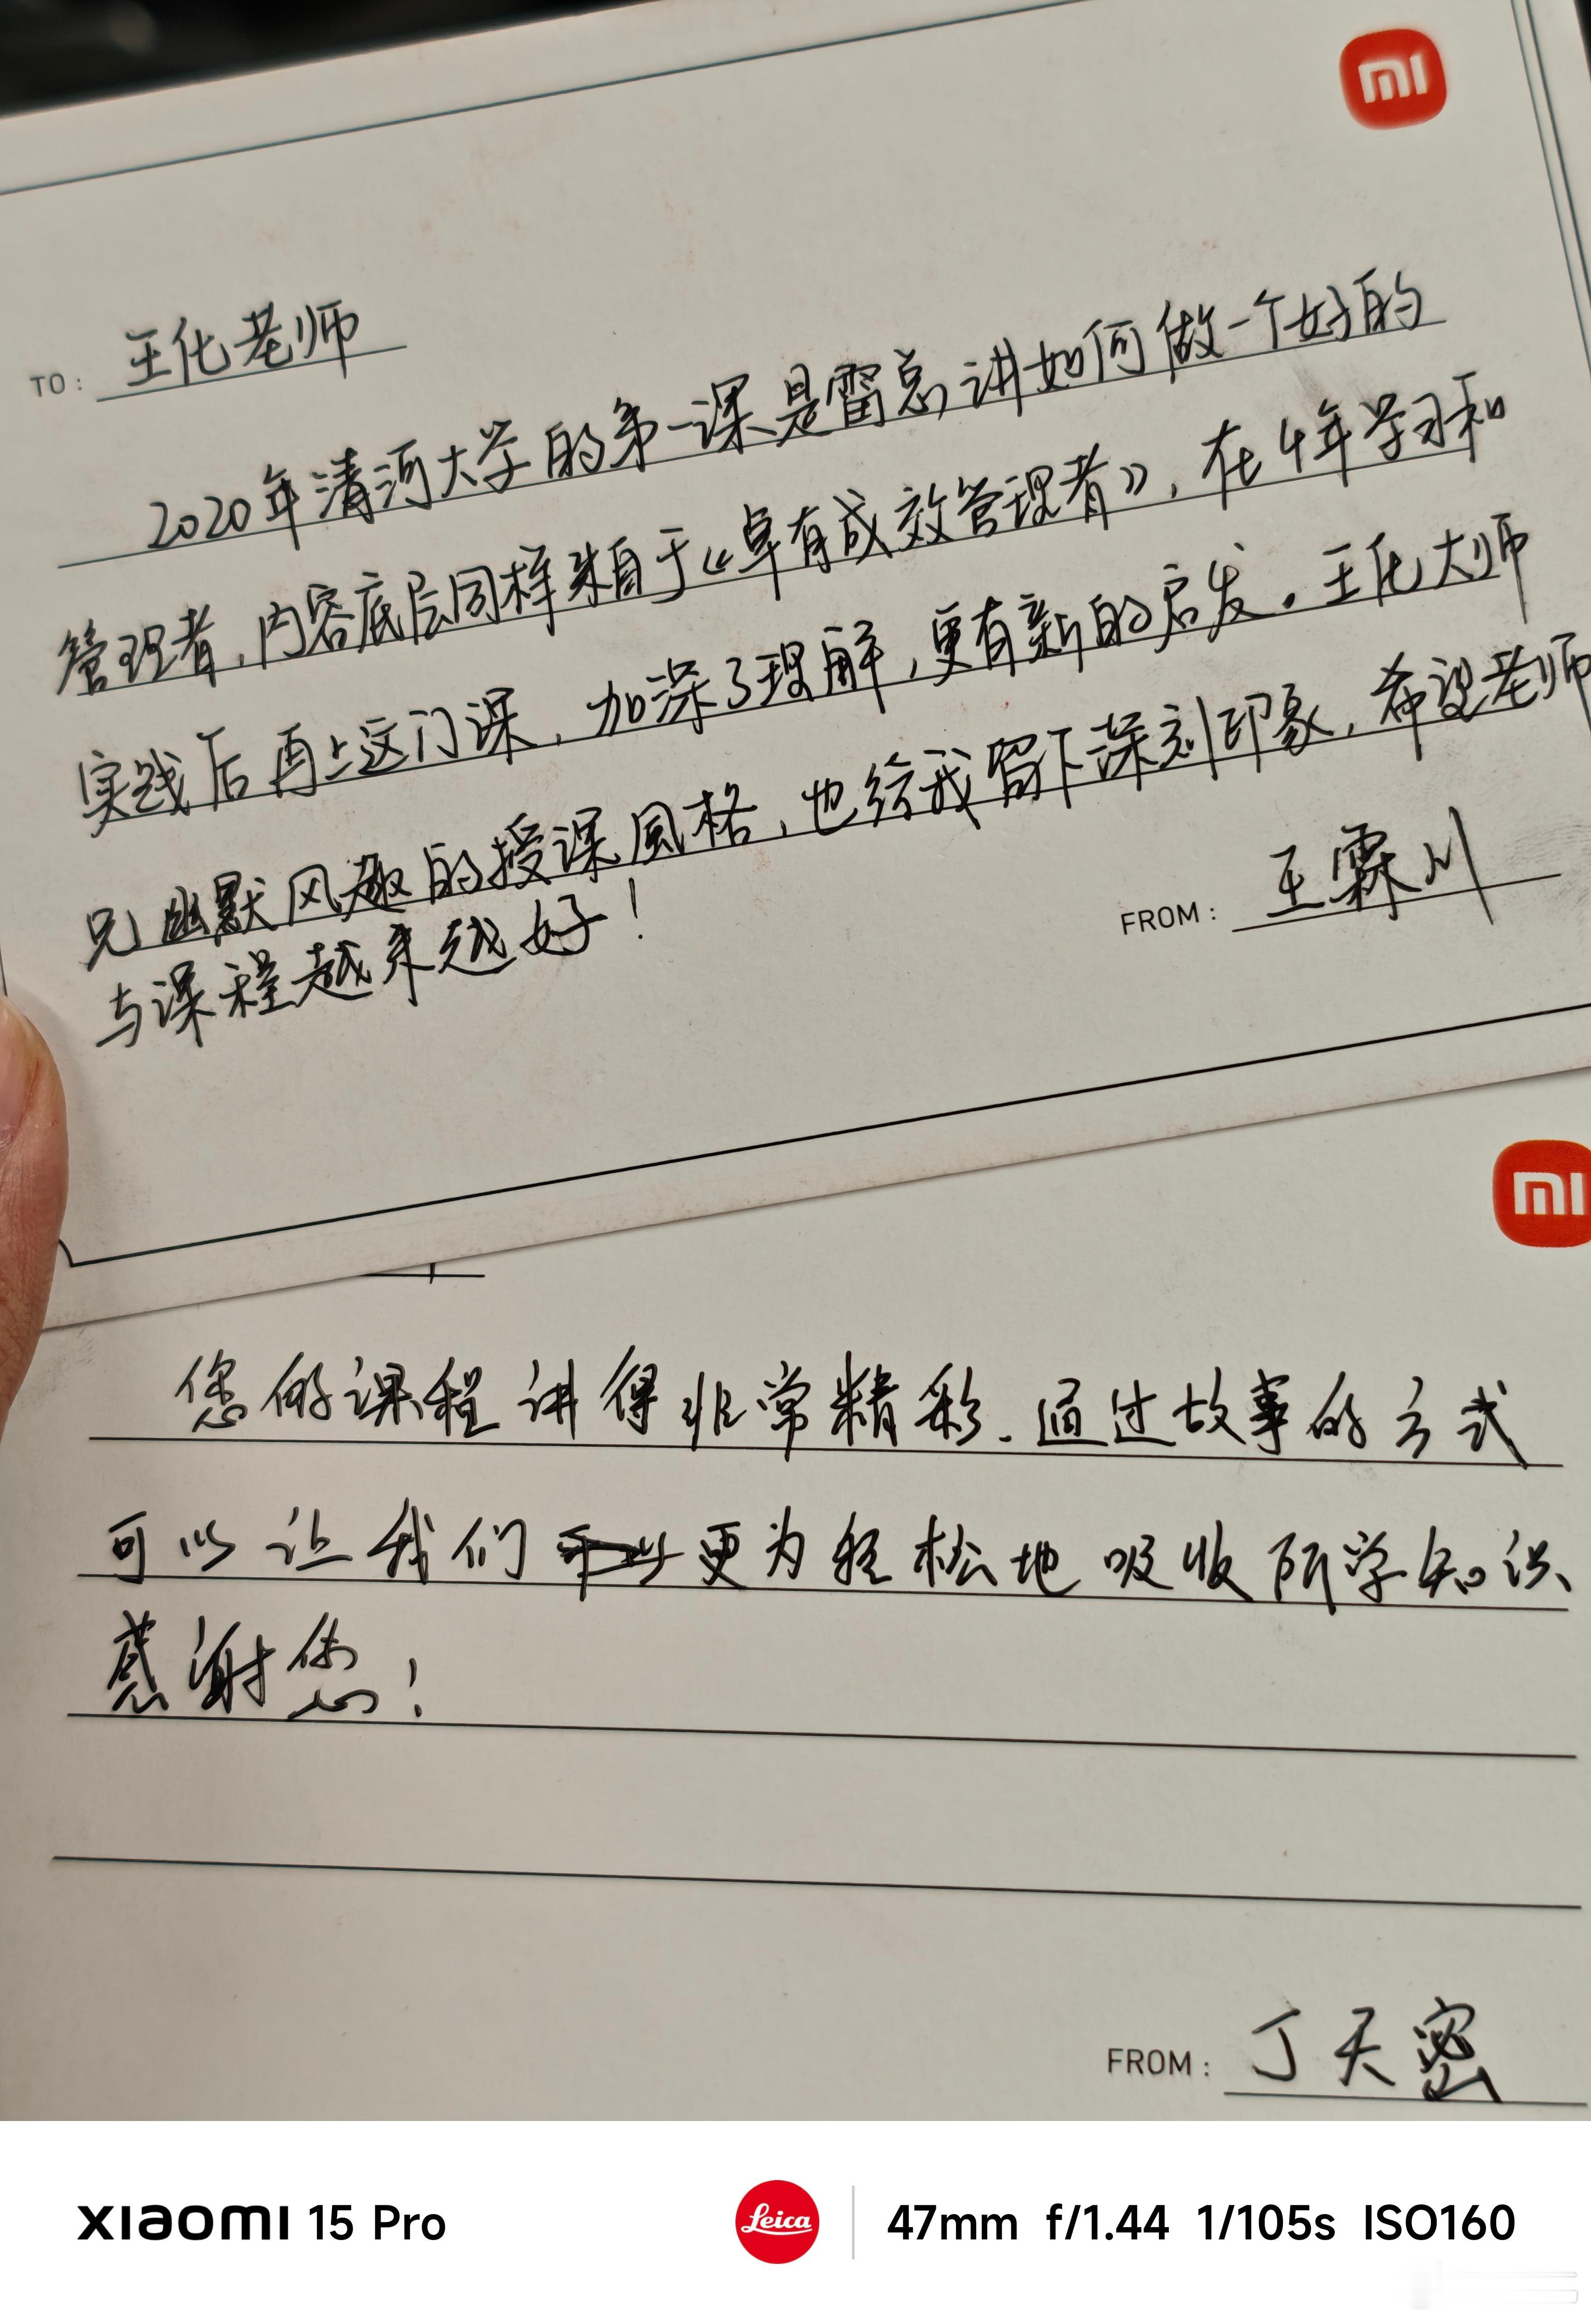 mi
TO: 王化老师
2020年清河大学的第一课是雷总讲如何做一个好的
管理者,内容底层同样来自于《卓有成效管理者》,在4年学习和
实践后再上这门课,加深了理解,更有新的启发。王化大师
兄幽默风趣的授课風格,也给我留下深刻印象,希望老师
与课程越来越好!
FROM: 王霖川
mi
您的课程讲得非常精彩.通过故事的方式
可以让我们更为轻松地吸收所学知识、
感谢您!
FROM: 丁天密
xiaomi 15 Pro
Leica
47mm f/1.44 1/105s ISO160